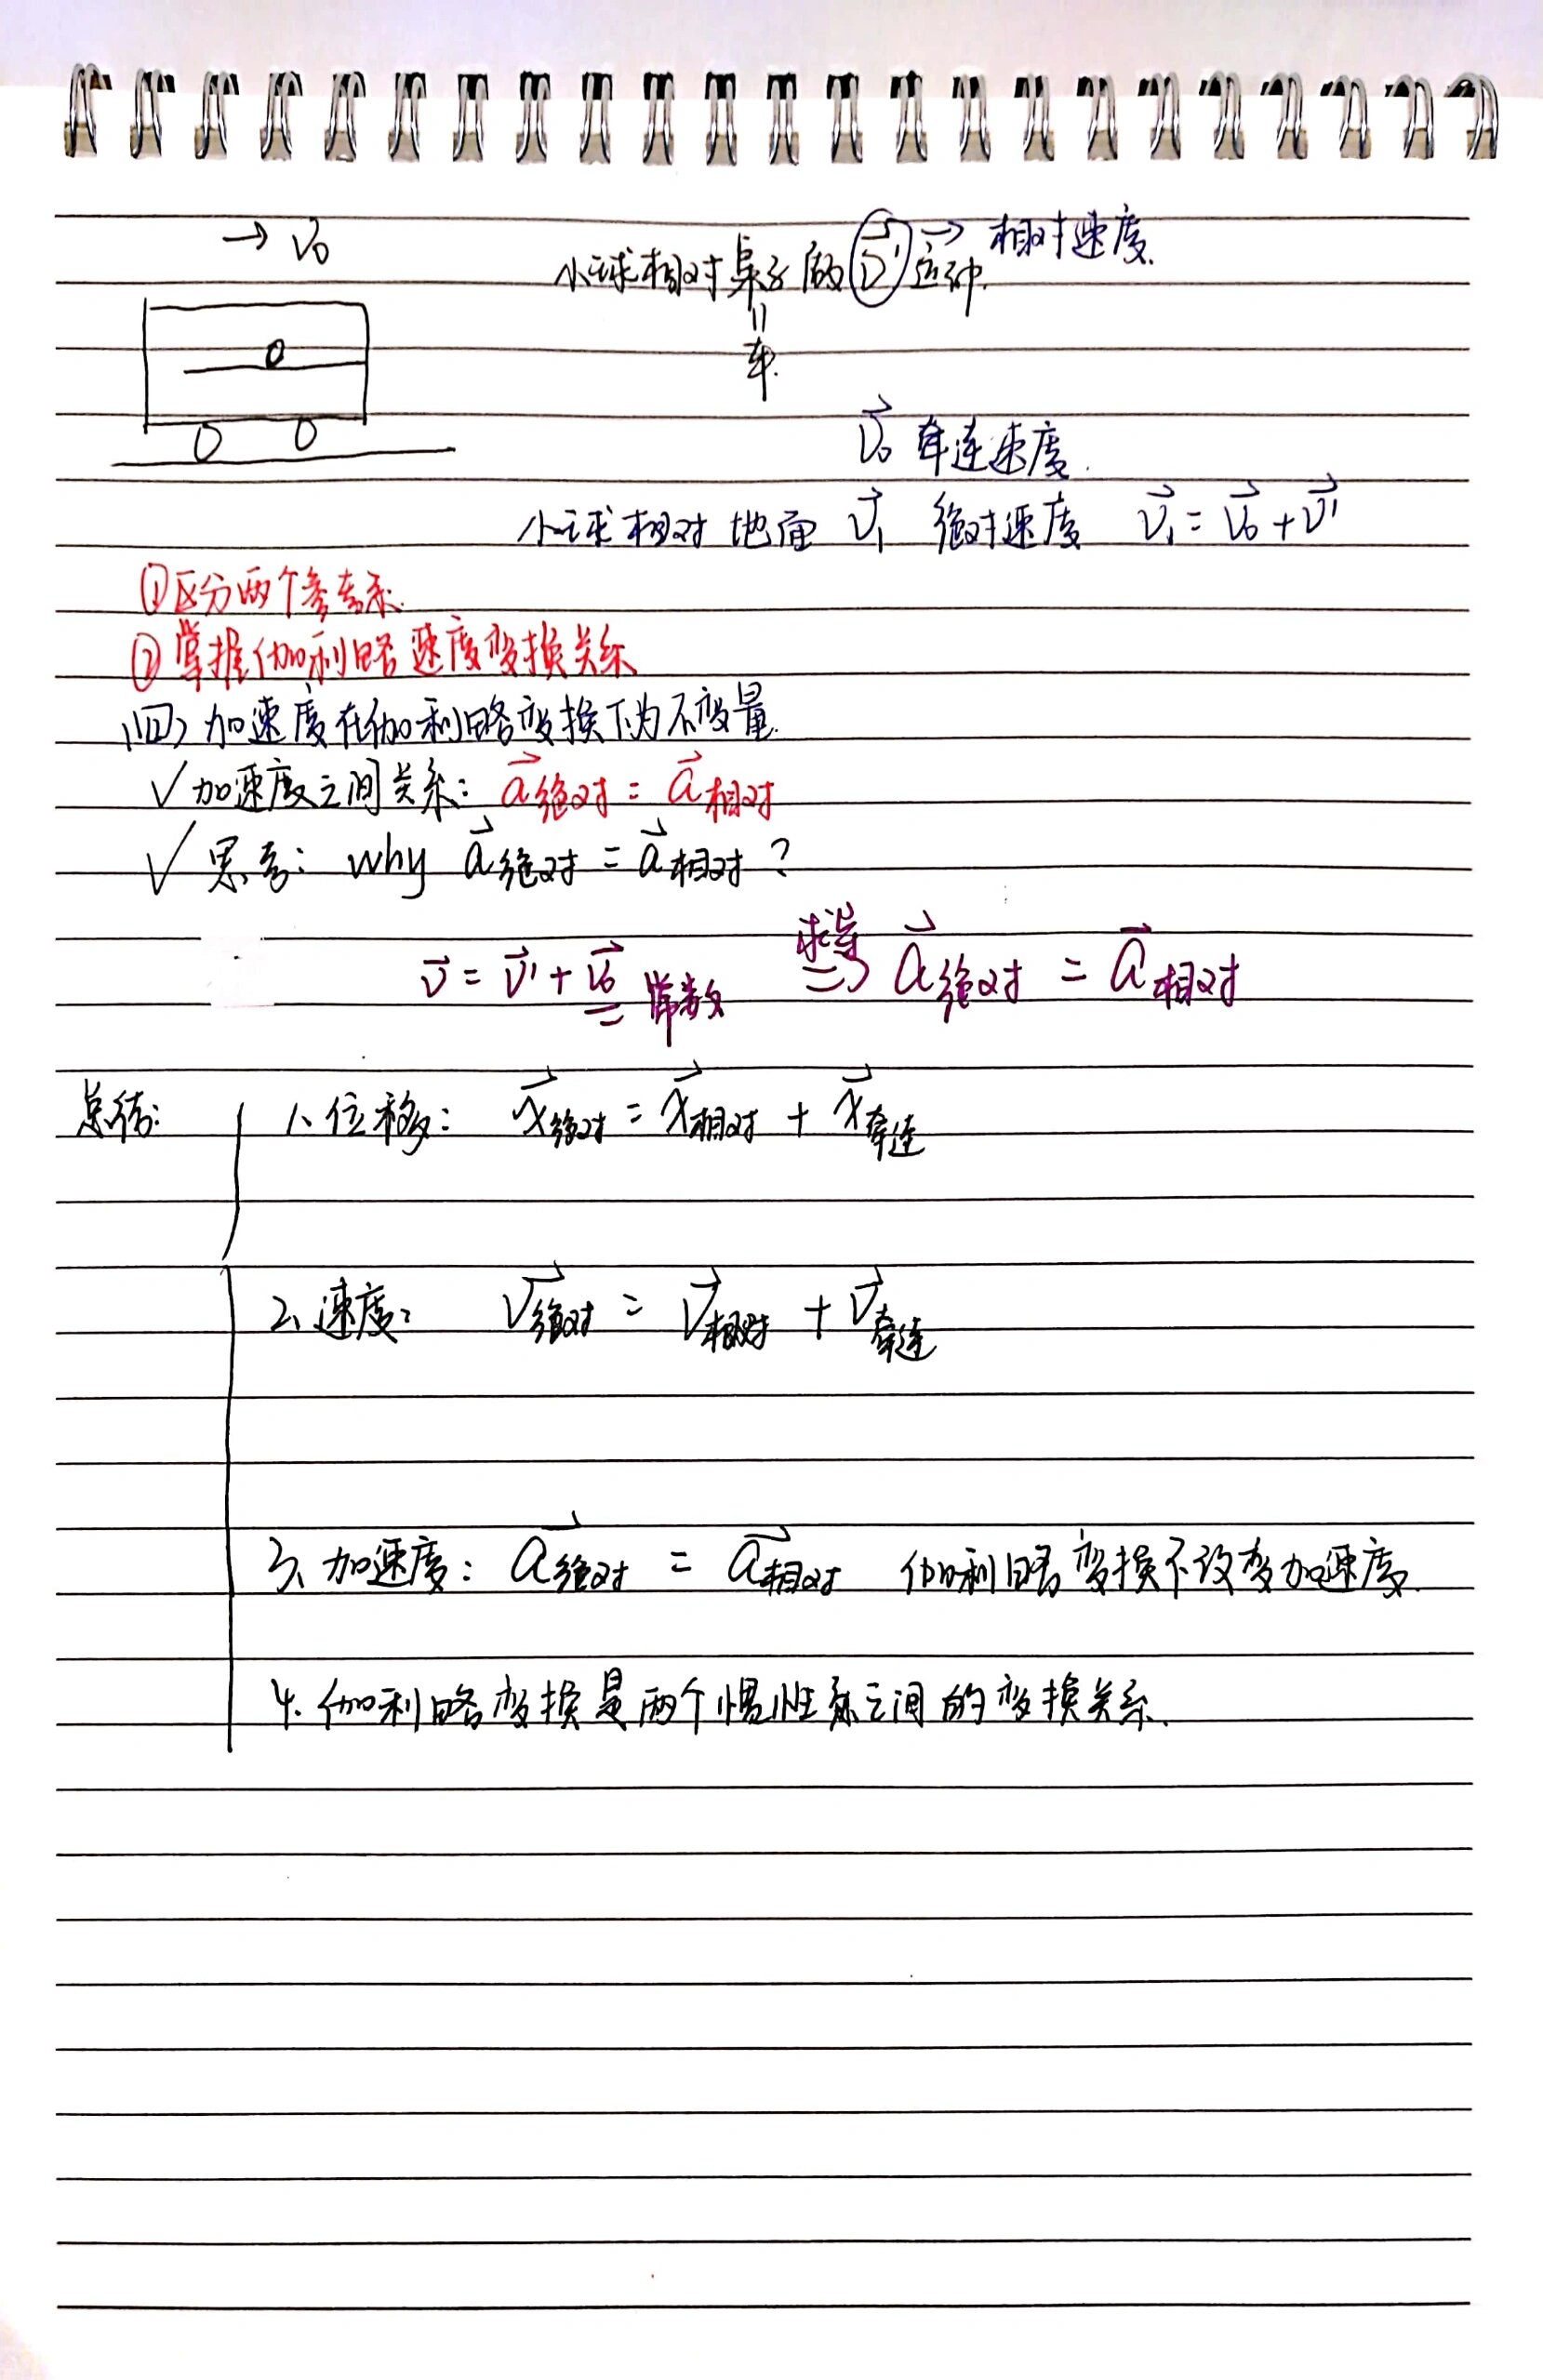 → V₀
小球相对桌子做 v⃗' 运动. → 相对速度.
=
车.
v⃗₀ 牵连速度.
小球相对地面 v⃗₁ 绝对速度 v⃗₁ = v⃗₀ + v⃗'
①区分两个参考系.
②掌握伽利略速度变换关系
(四) 加速度在伽利略变换下为不变量.
✓加速度之间关系: a⃗绝对 = a⃗相对
✓思考: why a⃗绝对 = a⃗相对?
v⃗ = v⃗' + v⃗₀ 常数 求导⇒ a⃗绝对 = a⃗相对
总结:
1、位移: x⃗绝对 = x⃗相对 + x⃗牵连
2、速度: v⃗绝对 = v⃗相对 + v⃗牵连
3、加速度: a⃗绝对 = a⃗相对 伽利略变换下改变加速度.
4.伽利略变换是两个惯性系之间的变换关系.